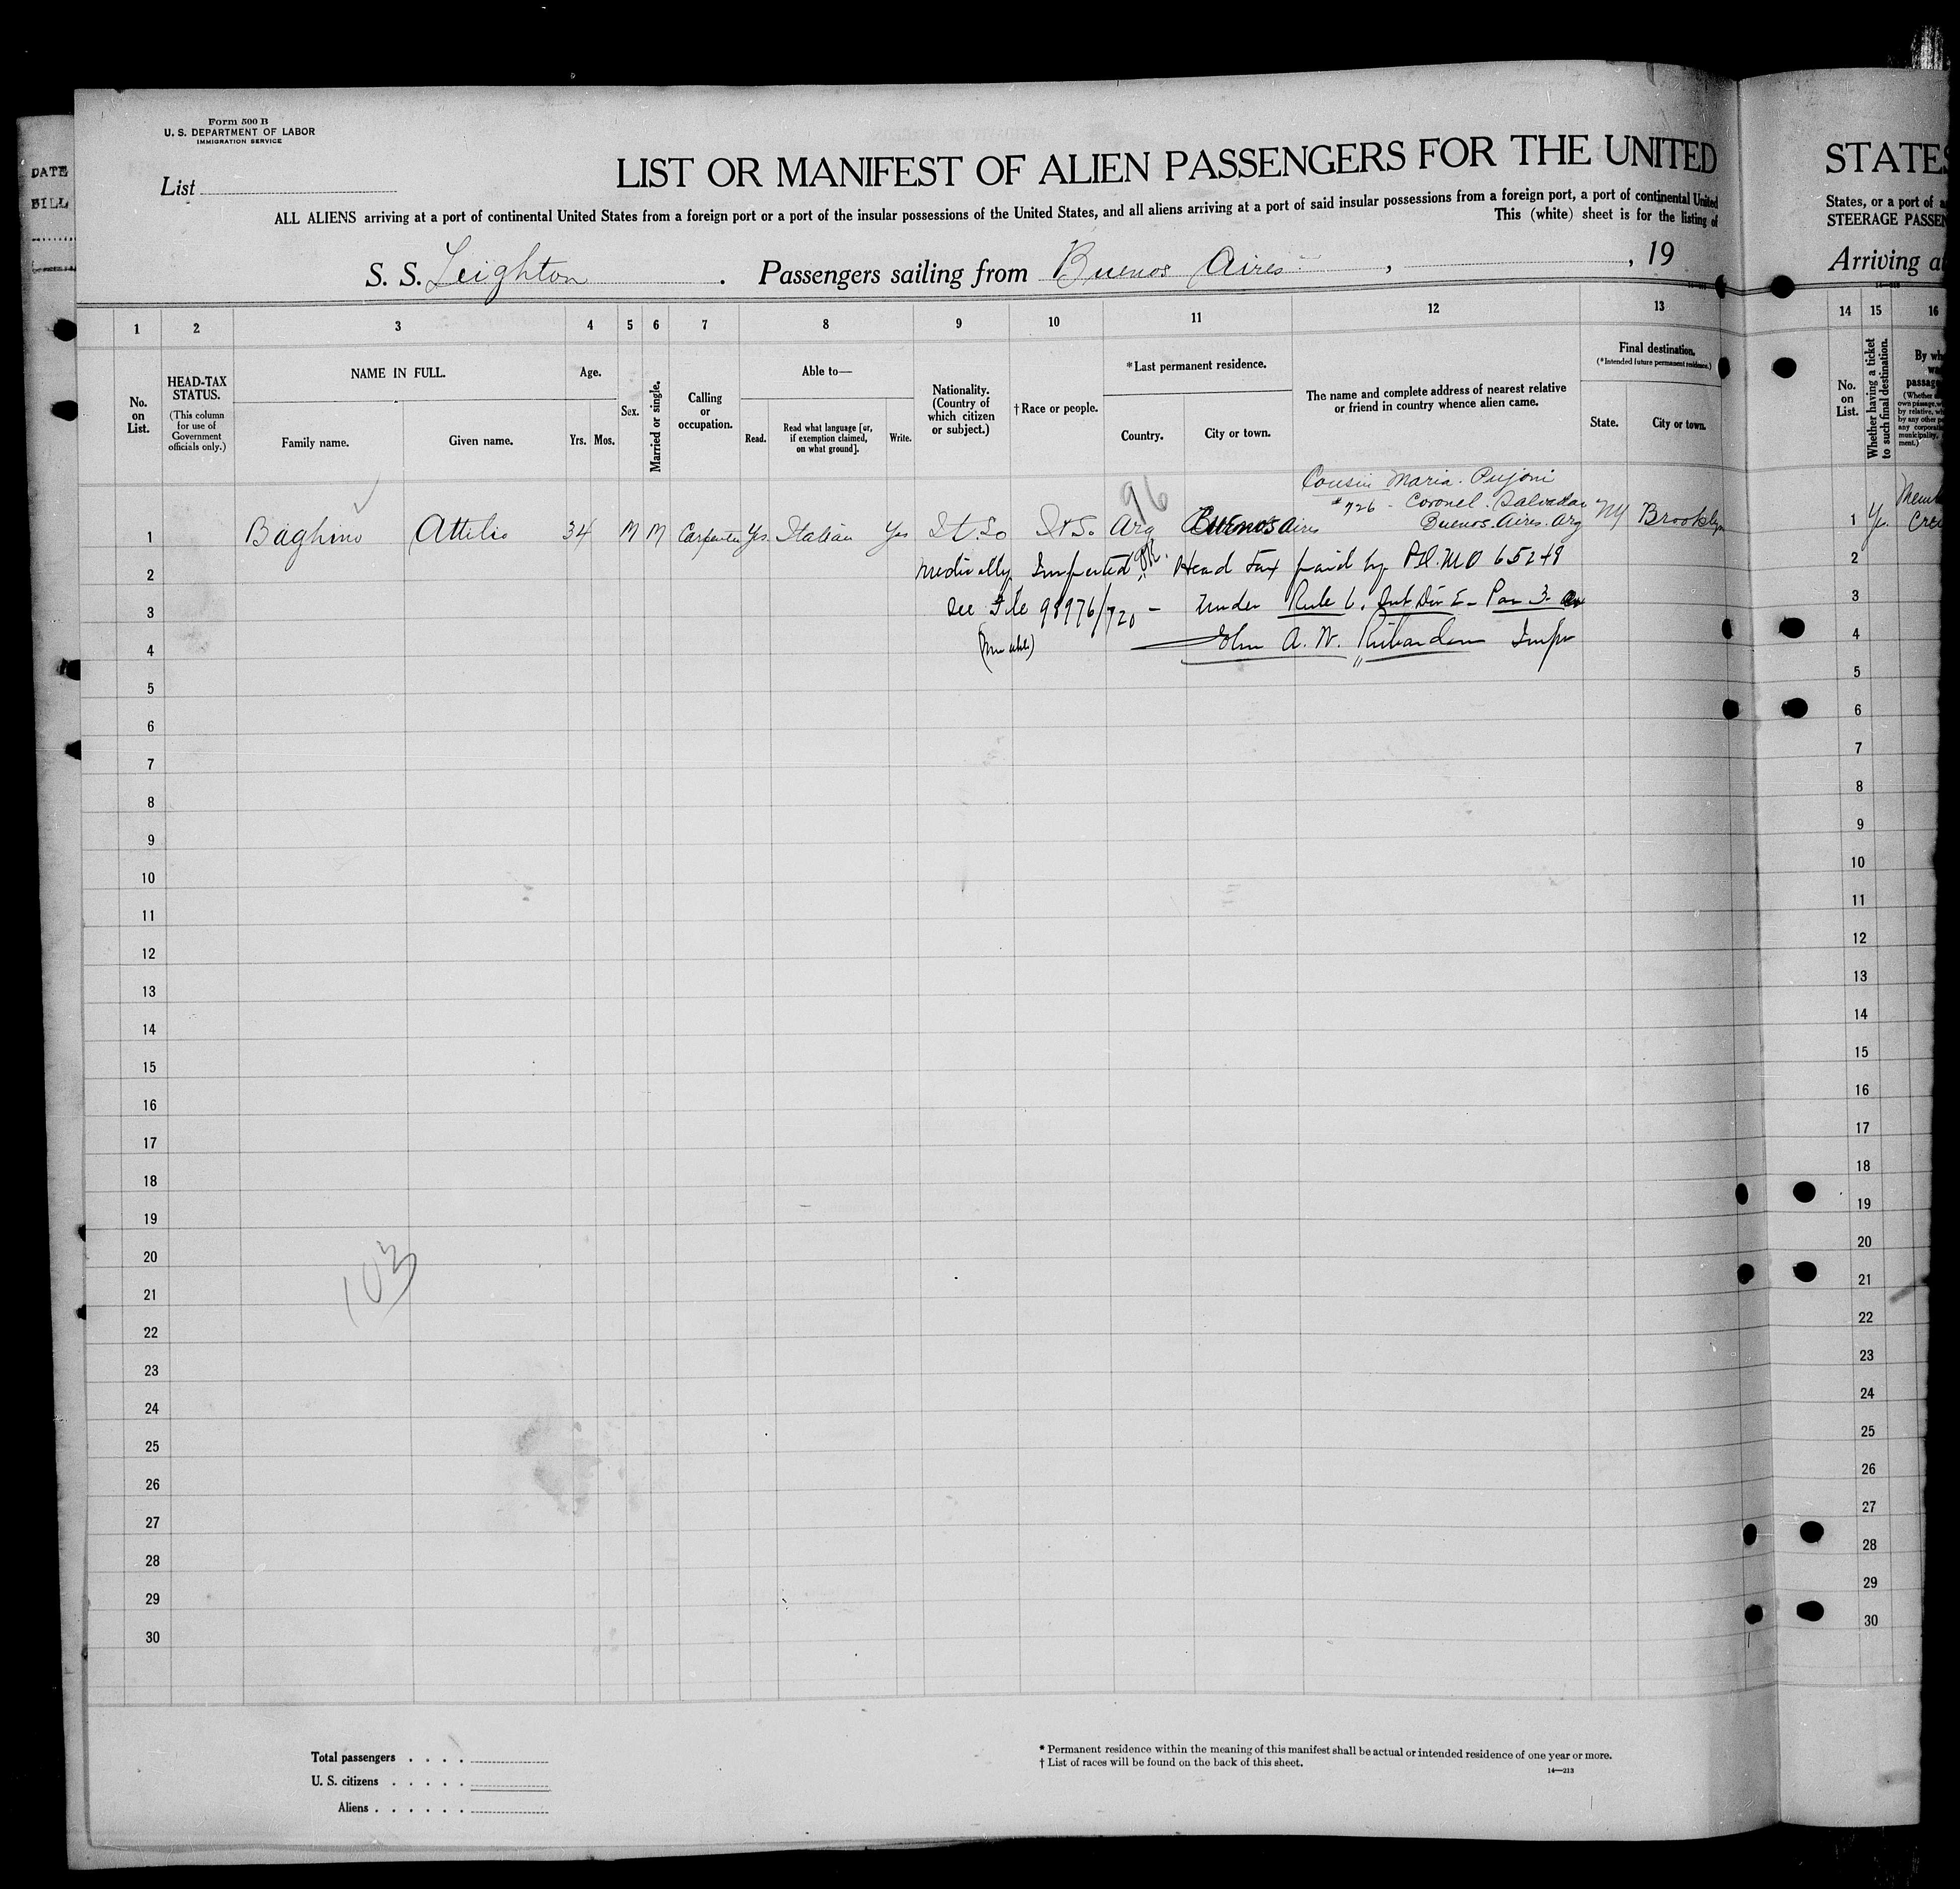 DATE
BILL
Form 500 B
U. S. DEPARTMENT OF LABOR
IMMIGRATION SERVICE
List
LIST OR MANIFEST OF ALIEN PASSENGERS FOR THE UNITED
ALL ALIENS arriving at a port of continental United States from a foreign port or a port of the insular possessions of the United States, and all aliens arriving at a port of said insular possessions from a foreign port, a port of continental United
This (white) sheet is for the listing of
S. S. Leighton . Passengers sailing from Buenos Aires , , 19
1 2 3 4 5 6 7 8 9 10 11 12 13
No. on List.
HEAD-TAX STATUS.
(This column for use of Government officials only.)
NAME IN FULL.
Family name. Given name.
Age.
Yrs. Mos.
Sex.
Married or single.
Calling or occupation.
Able to—
Read. Read what language [or, if exemption claimed, on what ground]. Write.
Nationality. (Country of which citizen or subject.)
† Race or people.
* Last permanent residence.
Country. City or town.
The name and complete address of nearest relative or friend in country whence alien came.
Final destination.
(* Intended future permanent residence.)
State. City or town.
96
Cousin Maria
#726 - Coronel Salvador
1 Baghino Attilio 34 M M Carpenter Yes Italian Yes It. So It So. Arg Buenos Aires Buenos Aires Arg NY Brooklyn
2 Medically Head tax paid by M O 65248
3 See File 98976/720 - Under Rule 6. Sub Div E - Par 3.
4 John A. W. Richardson Insp
5
6
7
8
9
10
11
12
13
14
15
16
17
18
19
20
103
21
22
23
24
25
26
27
28
29
30
Total passengers . . . .
U. S. citizens . . . . .
Aliens . . . . . .
* Permanent residence within the meaning of this manifest shall be actual or intended residence of one year or more.
† List of races will be found on the back of this sheet.
14—213
STATES
States, or a port of
STEERAGE PASSEN
Arriving at
14 15 16
No. on List.
Whether having a ticket to such final destination.
By wh
passag
1 Yes
2
3
4
5
6
7
8
9
10
11
12
13
14
15
16
17
18
19
20
21
22
23
24
25
26
27
28
29
30